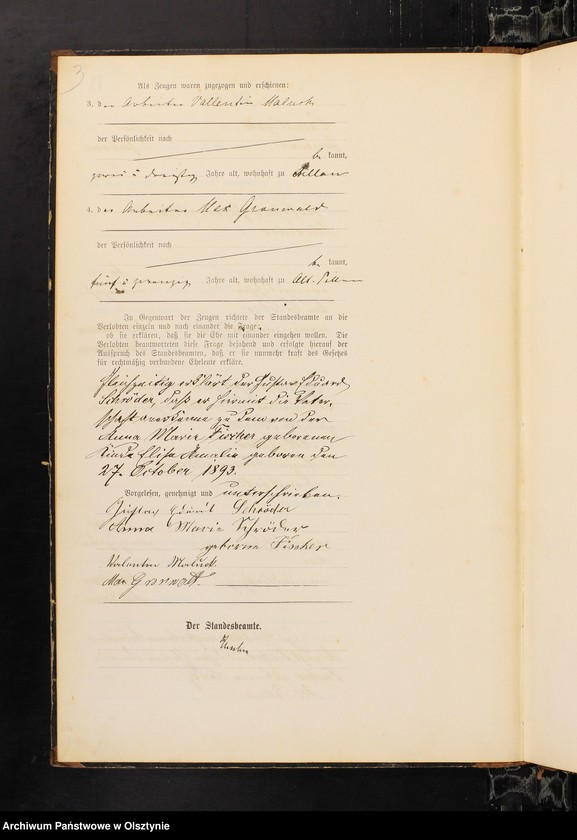 3
Als Zeugen waren zugezogen und erschienen:
3. der Arbeiter Vallentin Maluck
der Persönlichkeit nach
be kannt,
zwei u dreißig Jahre alt, wohnhaft zu Pillau
4. der Arbeiter Max Grunwald
der Persönlichkeit nach
be kannt,
fünf u zwanzig Jahre alt, wohnhaft zu Alt-Pillau
In Gegenwart der Zeugen richtete der Standesbeamte an die
Verlobten einzeln und nach einander die Frage:
ob sie erklären, daß sie die Ehe mit einander eingehen wollen. Die
Verlobten beantworteten diese Frage bejahend und erfolgte hierauf der
Ausspruch des Standesbeamten, daß er sie nunmehr kraft des Gesetzes
für rechtmäßig verbundene Eheleute erkläre.
Gleichzeitig erklärt der Gustav Eduard
Schröder, daß er hiermit die Vater-
schaft anerkenne zu dem von der
Anna Marie Fischer geborenen
Kinde Elisa Amalia geboren den
27. October 1893.
Vorgelesen, genehmigt und unterschrieben.
Gustav Eduard Schröder
Anna Marie Schröder
geborene Fischer
Valentin Maluck.
Max Grunwald.
Der Standesbeamte.
Archiwum Państwowe w Olsztynie